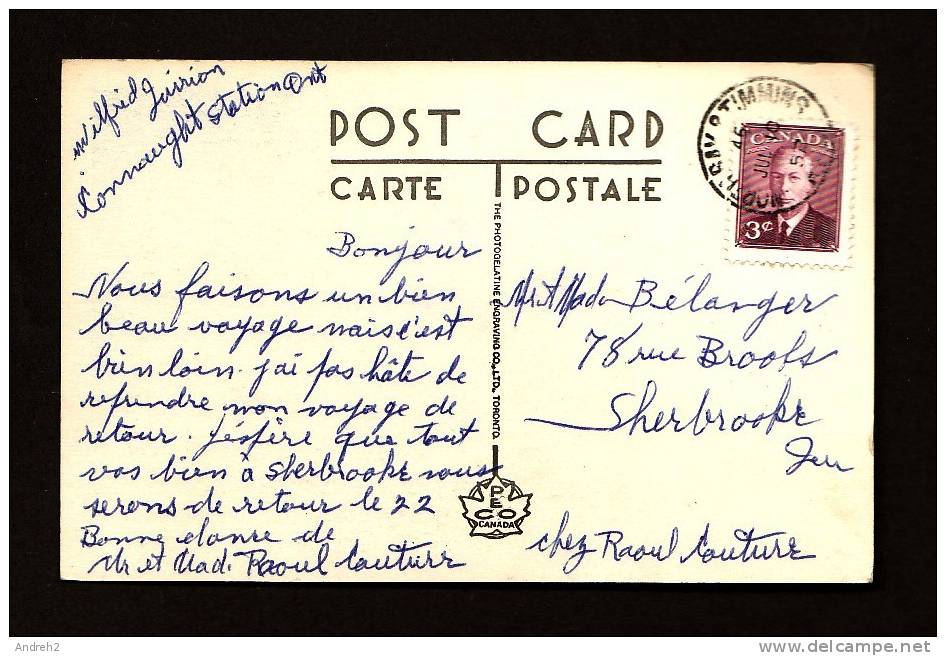 Wilfrid
Connaught Station Ont
POST CARD
CARTE POSTALE
Bonjour
Nous faisons un bien
beau voyage mais c'est
bien loin. j'ai pas hâte de
reprendre mon voyage de
retour. j'éspère que tout
vas bien à Sherbrooke nous
serons de retour le 22
Bonne de
Mr et Mad. Raoul Couture
THE PHOTOGELATINE ENGRAVING CO., LTD. TORONTO.
PECO
CANADA
TIMMINS
JUL
CANADA
3¢
Mr et Mada Bélanger
78 rue Brooks
Sherbrooke
chez Raoul Couture
Andreh2
delcampe.net